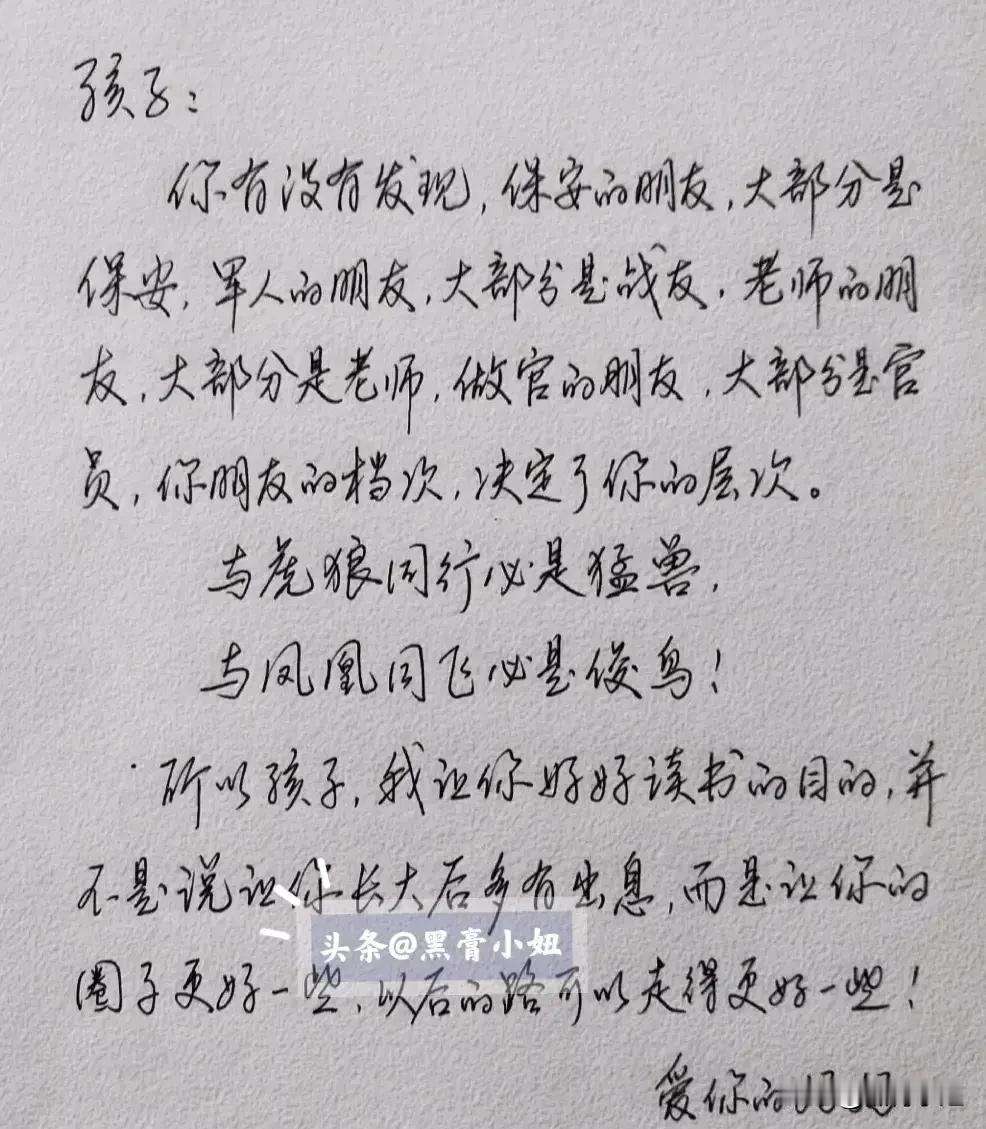 孩子：
你有没有发现，保安的朋友，大部分是
保安，军人的朋友，大部分是战友，老师的朋
友，大部分是老师，做官的朋友，大部分是官
员，你朋友的档次，决定了你的层次。
与虎狼同行必是猛兽，
与凤凰同飞必是俊鸟！
所以孩子，我让你好好读书的目的，并
不是说让你长大后多有出息，而是让你的
头条@黑膏小妞
圈子更好一些，以后的路可以走得更好一些！
爱你的